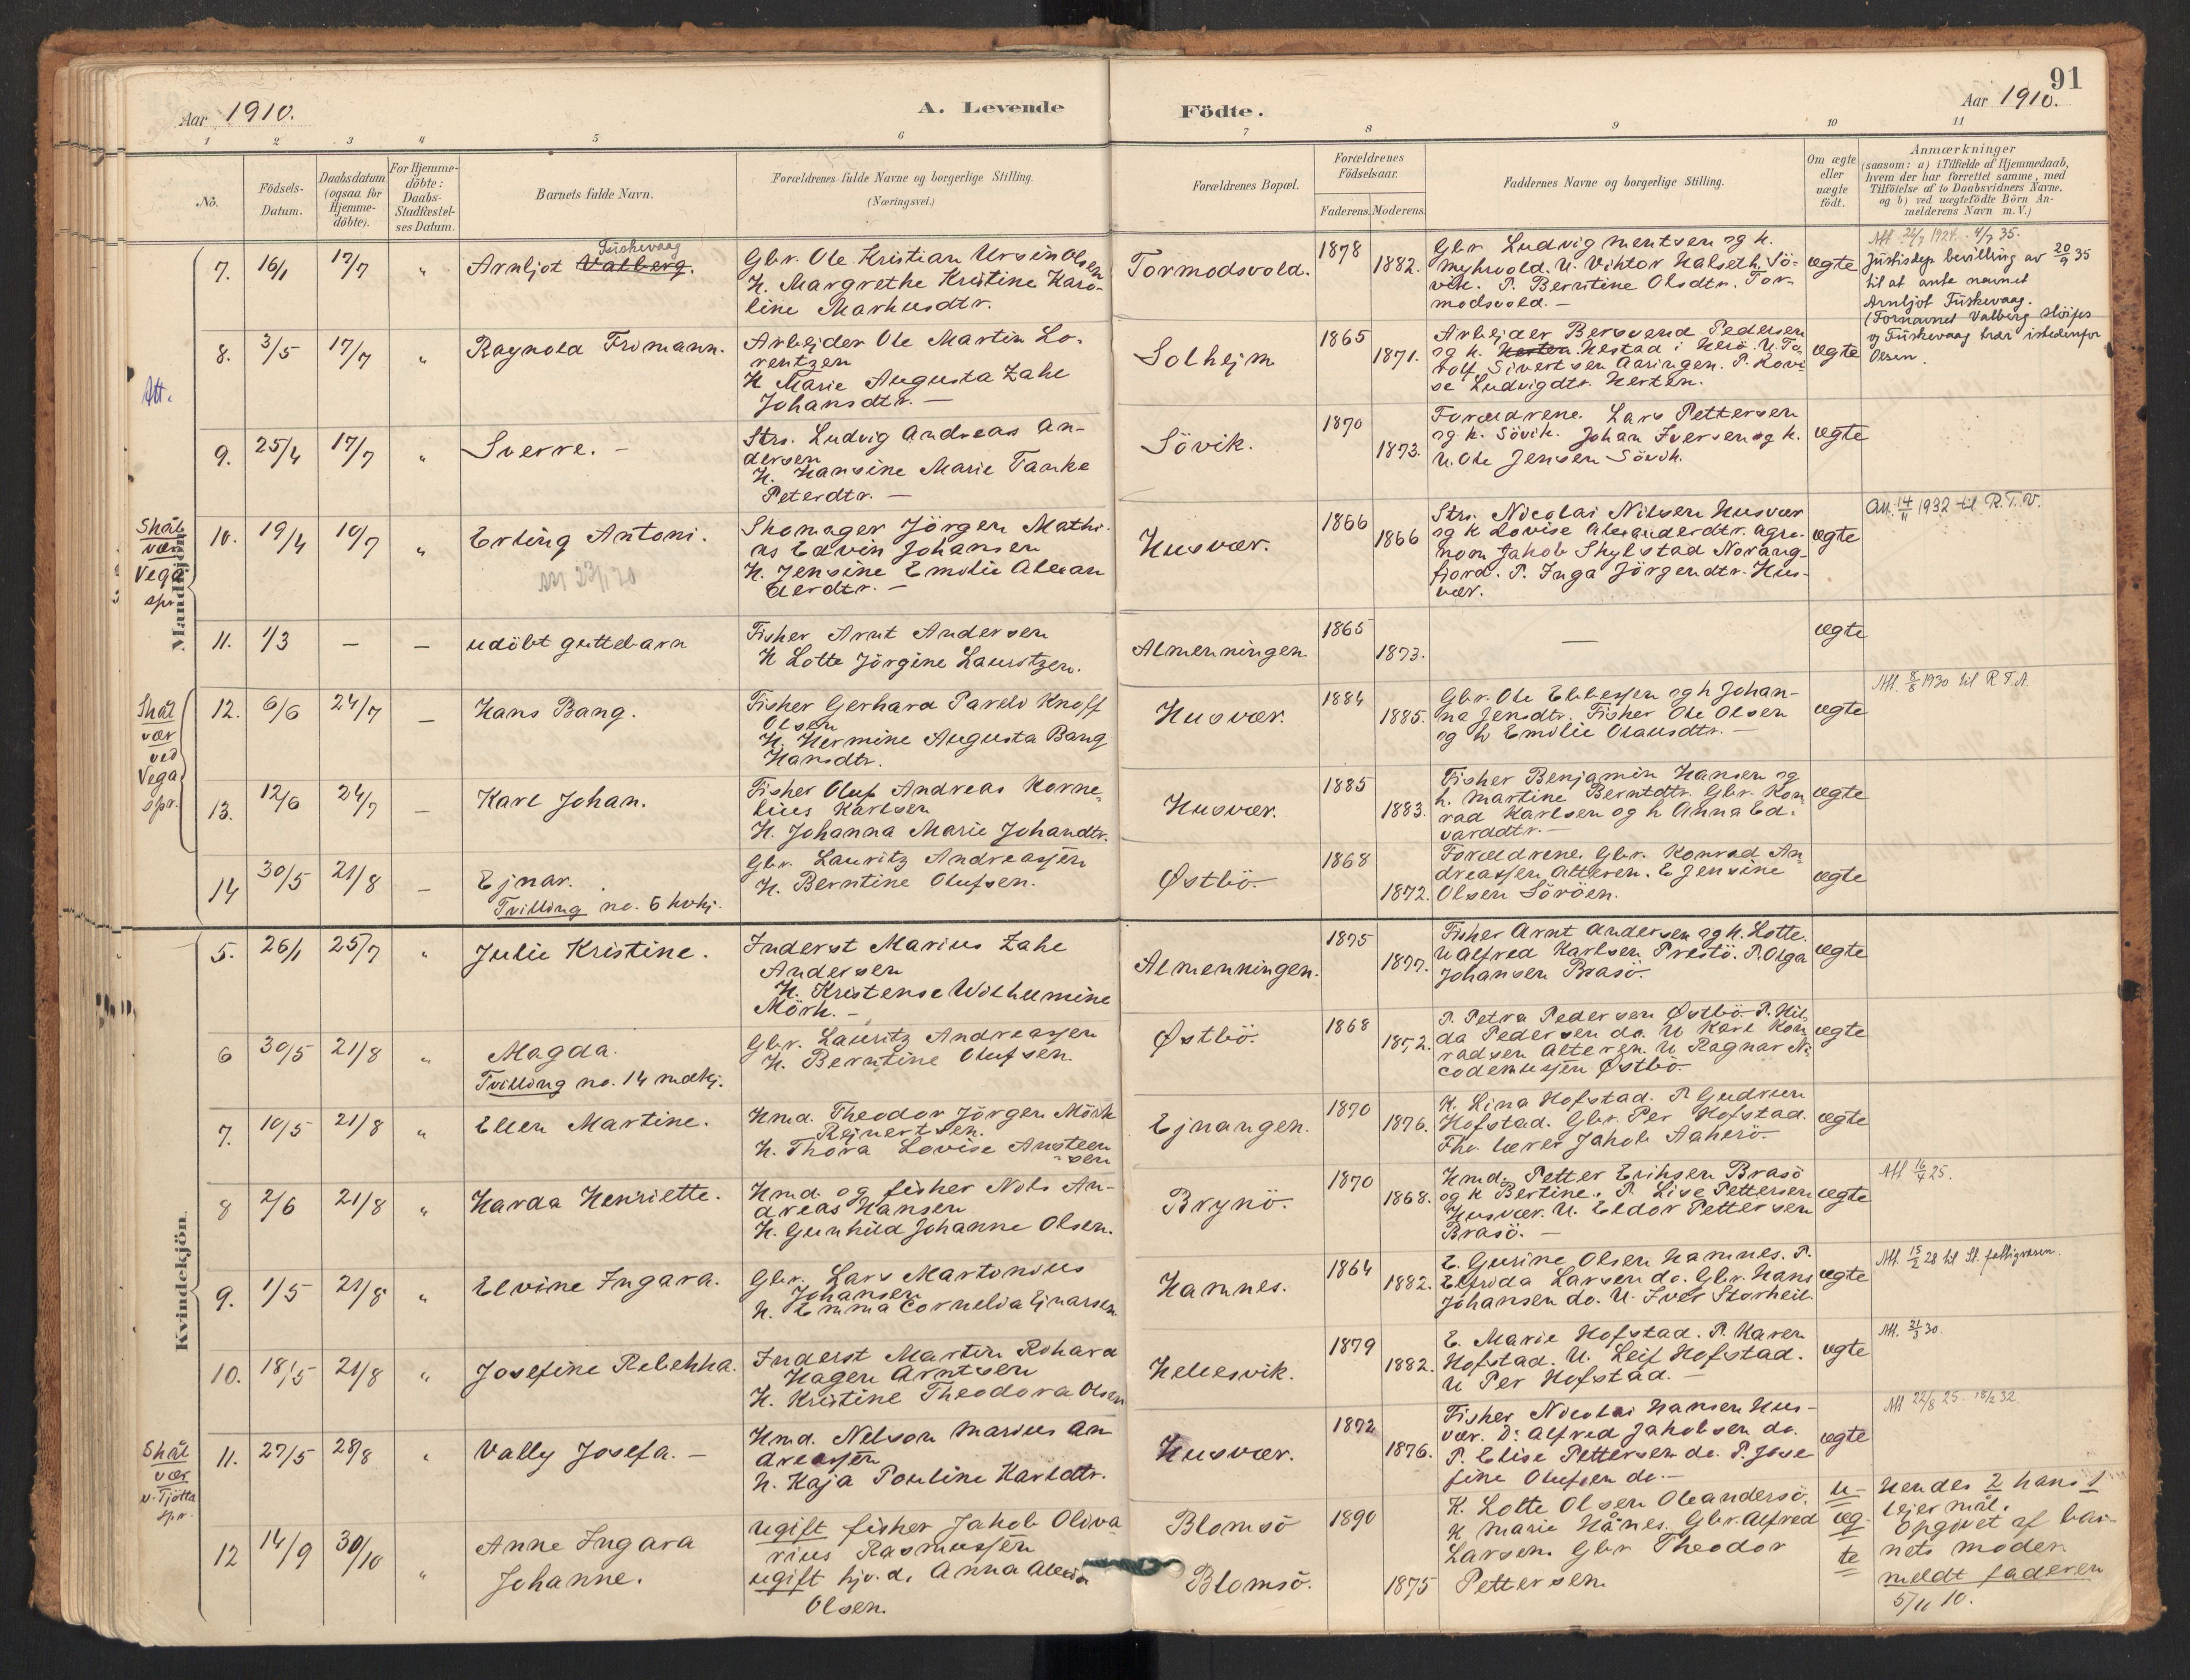 91
Aar 1910.
A. Levende
Födte.
Aar 1910.
1 2 3 4 5 6 7 8 9 10 11
No.
Födsels-
Datum.
Daabsdatum
(ogsaa for
Hjemme-
döbte).
For Hjemme-
döbte:
Daabs-
Stadfæstel-
ses Datum.
Barnets fulde Navn.
Forældrenes fulde Navne og borgerlige Stilling.
(Næringsvei.)
Forældrenes Bopæl.
Forældrenes
Födselsaar.
Faderens. Moderens.
Faddernes Navne og borgerlige Stilling.
Om ægte
eller
uægte
födt.
Anmærkninger
(saasom: a) i Tilfælde af Hjemmedaab,
hvem der har forrettet samme, med
Tilföielse af to Daabsvidners Navne.
og b) ved uægtefödte Börn An-
melderens Navn m. V.)
Mandkjön.
7. 16/1 17/7 "
Fuskevaag
Arnljot Valberg.
Gbr. Ole Kristian Ursin Olsen
H. Margrethe Kristine Karo-
line Markusdtr.
Tormodsvold.
1878
1882.
Gbr. Ludvig Mentsen og h.
Myhrvold. U. Viktor Halseth, Sö-
vik. P. Berntine Olsdtr. Tor-
modsvold. -
ægte
Att 24/7 1924. 4/7 35.
Justisdep bevilling av 20/9 35
til at anta navnet
Arnljot Fuskevaag.
(Fornavnet Valberg slöifes
og Fuskevaag trær istedenfor
Olsen.
Att.
8. 3/5 17/7 "
Ragnold Fromann.
Arbejder Ole Martin Lo-
rentzen
H Marie Augusta Zahl
Johansdtr. -
Solhejm
1865
1871.
Arbejder Bersvend Pedersen
og h. Herten Hestad i Herö. U. To-
rolf Sivertsen Aaringen. P. Lovi-
se Ludvigdtr. Herten.
ægte
9. 25/4 17/7 "
Sverre. -
Strs. Ludvig Andreas An-
dersen
H. Hansine Marie Tanke
Peterdtr. -
Sövik.
1870
1873.
Forældrene. Lars Pettersen
og h. Sövik. Johan Iversen og h.
U. Ole Jensen Sövik.
ægte
Skål
vær
Vega
spr.
10. 19/4 10/7 "
Erling Antoni.
Skomager Jörgen Mathi-
as Edvin Johansen
H. Jensine Emilie Alexan
derdtr. -
Husvær.
1866
1866
Strs. Nicolai Nilsen Husvær
og h Lovise Alexanderdtr. Agro-
nom Jakob Skylstad Norang-
fjord. P. Inga Jörgendtr. Hus-
vær.
ægte
Att. 14/11 1932 til R.T.V.
11. 1/3 — —
udöbt guttebarn
Fisker Arnt Andersen
H Lotte Jörgine Lauritzen.
Almenningen
1865
1873.
—
ægte
Skål
vær
ved
Vega
spr.
12. 6/6 24/7 —
Hans Bang.
Fisker Gerhard Parelo Knoff
Olsen
H. Hermine Augusta Bang
Hansdtr.
Husvær.
1884
1885.
Gbr. Ole Ebbesen og h Johan-
na Jensdtr. Fisker Ole Olsen
og h Emilie Olausdtr. -
ægte
Att. 8/8 1930 til R.T.A.
13. 12/6 24/7 —
Karl Johan.
Fisker Oluf Andreas Korne-
lius Karlsen
H. Johanna Marie Johandtr.
Husvær.
1885
1883.
Fisker Benjamin Hansen og
h. Martine Berntdtr. Gbr. Kon
rad Karlsen og h Anna Ed-
varddtr. -
ægte
14 30/5 21/8 —
Ejnar.
Tvilling no. 6 kvkj.
Gbr. Lauritz Andreassen
H. Berntine Olufsen.
Östbö.
1868
1872.
Forældrene. Gbr. Konrad An
dreassen Alteren. E Jensine
Olsen Söröen.
ægte
Kvindekjön.
5. 26/1 25/7 "
Julie Kristine.
Inderst Marius Zahl
Andersen
H. Kristense Wilhelmine
Mörk. -
Almenningen.
1875
1877.
Fisker Arnt Andersen og h. Lotte.
U Alfred Karlsen Prestö. P. Olga
Johansen Brasö.
ægte
6 30/5 21/8 "
Magda.
Tvilling no. 14 mdkj.
Gbr. Lauritz Andreassen
H. Berntine Olufsen.
Östbö.
1868
1872.
P. Petra Pedersen Östbö. P. Hil
da Pedersen do. U Karl Kon
radsen Alteren. U Ragnar Ni
codemussen Östbö.
ægte
7. 10/5 21/8 "
Ellen Martine.
Hmd. Theodor Jörgen Mörk
Rejnertsen.
H. Thora Lovise Austeen
sen
Ejnangen.
1870
1876.
K. Lina Hofstad. P Gudrun
Hofstad. Gbr. Per Hofstad.
Fhv. lærer Jakob Aakerö.
ægte
8 2/6 21/8 "
Harda Henriette.
Hmd. og fisker Nils An-
dreas Hansen
H. Gunhild Johanne Olsen.
Brynö.
1870
1868.
Hmd. Petter Eriksen Brasö
og h Bertine. P. Lise Pettersen
Husvær. U. Eldor Pettersen
Brasö. -
ægte
Att 16/4 25.
9. 1/5 21/8 "
Elvine Ingara.
Gbr. Lars Martonius
Johansen
H. Emma Cornelia Ejnarsen
Hamnes.
1864
1882.
E. Gurine Olsen Hamnes. P.
Elfrida Larsen do. Gbr. Hans
Johansen do. U. Iver Storheil.
ægte
Att 15/2 28 til St. fattigvæsen.
10. 18/5 21/8 "
Josefine Rebekka.
Inderst Martin Rohard
Hagen Arntsen
H. Kristine Theodora Olsen
Hellesvik.
1879
1882.
E. Marie Hofstad. P. Karen
Hofstad. U. Leif Hofstad.
U Per Hofstad. -
ægte
Att. 21/3 30.
Skål
vær
v. Tjötta
spr.
11. 27/5 28/8 "
Vally Josefa. -
Hmd. Nelson Marius An
dreassen
H. Kaja Pouline Karldtr.
Husvær.
1872
1876.
Fisker Nicolai Hansen Hus-
vær. Do Alfred Jakobsen do.
P. Elise Pettersen do. P. Jose
fine Olufsen do. -
ægte
Att 22/8 25. 18/2 32.
12 14/9 30/10 "
Anne Ingara
Johanne.
ugift fisker Jakob Oliva
rius Rasmussen
ugift hjv. d. Anna
Olsen.
Blomsö
Blomsö.
1890
1875
K. Lotte Olsen Oleandersö.
K Marie Hånes. Gbr. Alfred
Larsen. Gbr Theodor
Pettersen
u-
æg-
te
Hendes 2 hans 1
lejermål.
Opgivet af bar-
nets moder
meldt faderen
5/11 10.